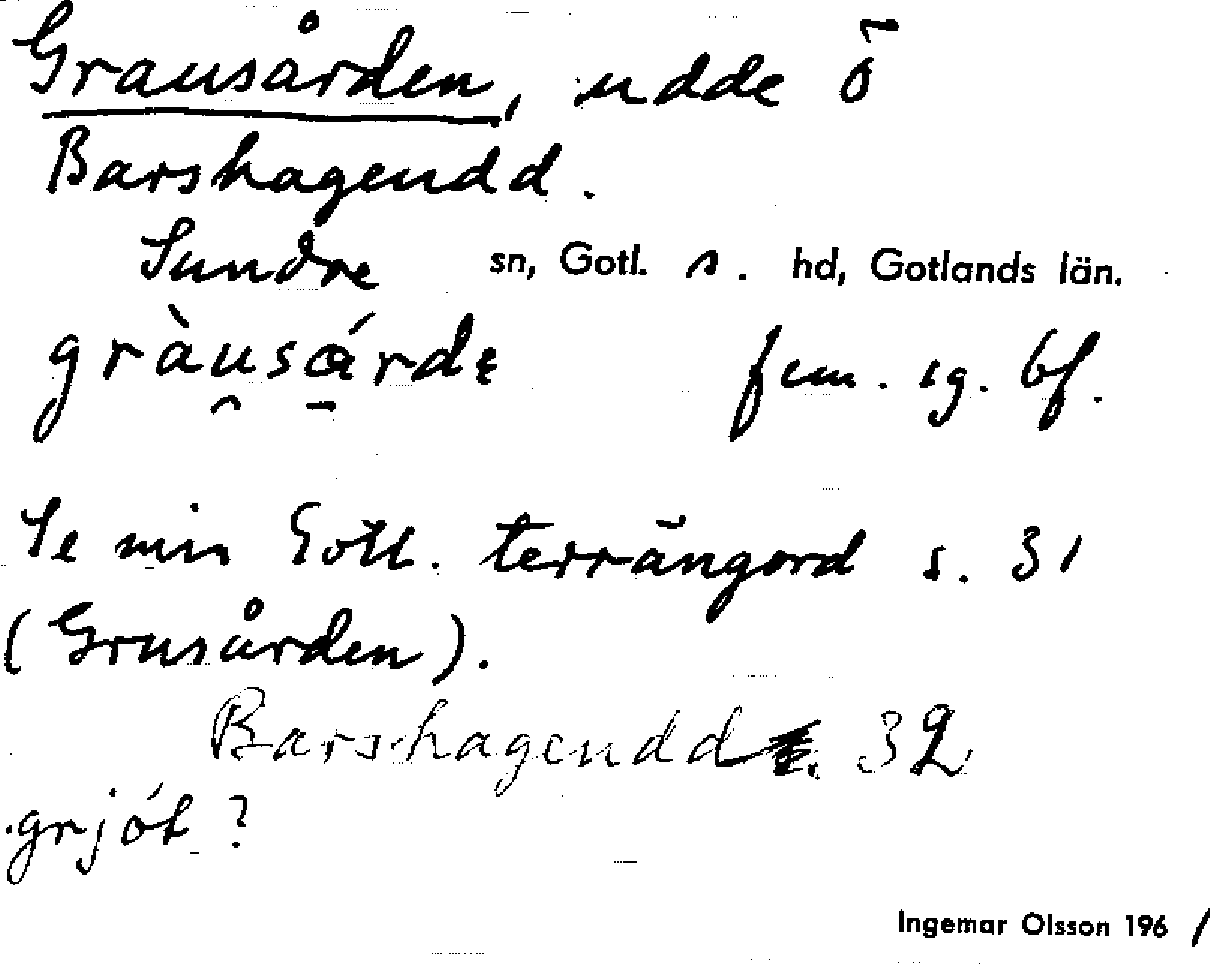 Grausården, udde ö
Barshagendd.
Sundre sn, Gotl. s. hd, Gotlands län.
gràu̯sǻ̱rdɛ fem. sg. bf.
Se min Gotl. terrängord s. 31
(Grusården).
Barshagendd 32
grjót ?
Ingemar Olsson 1961